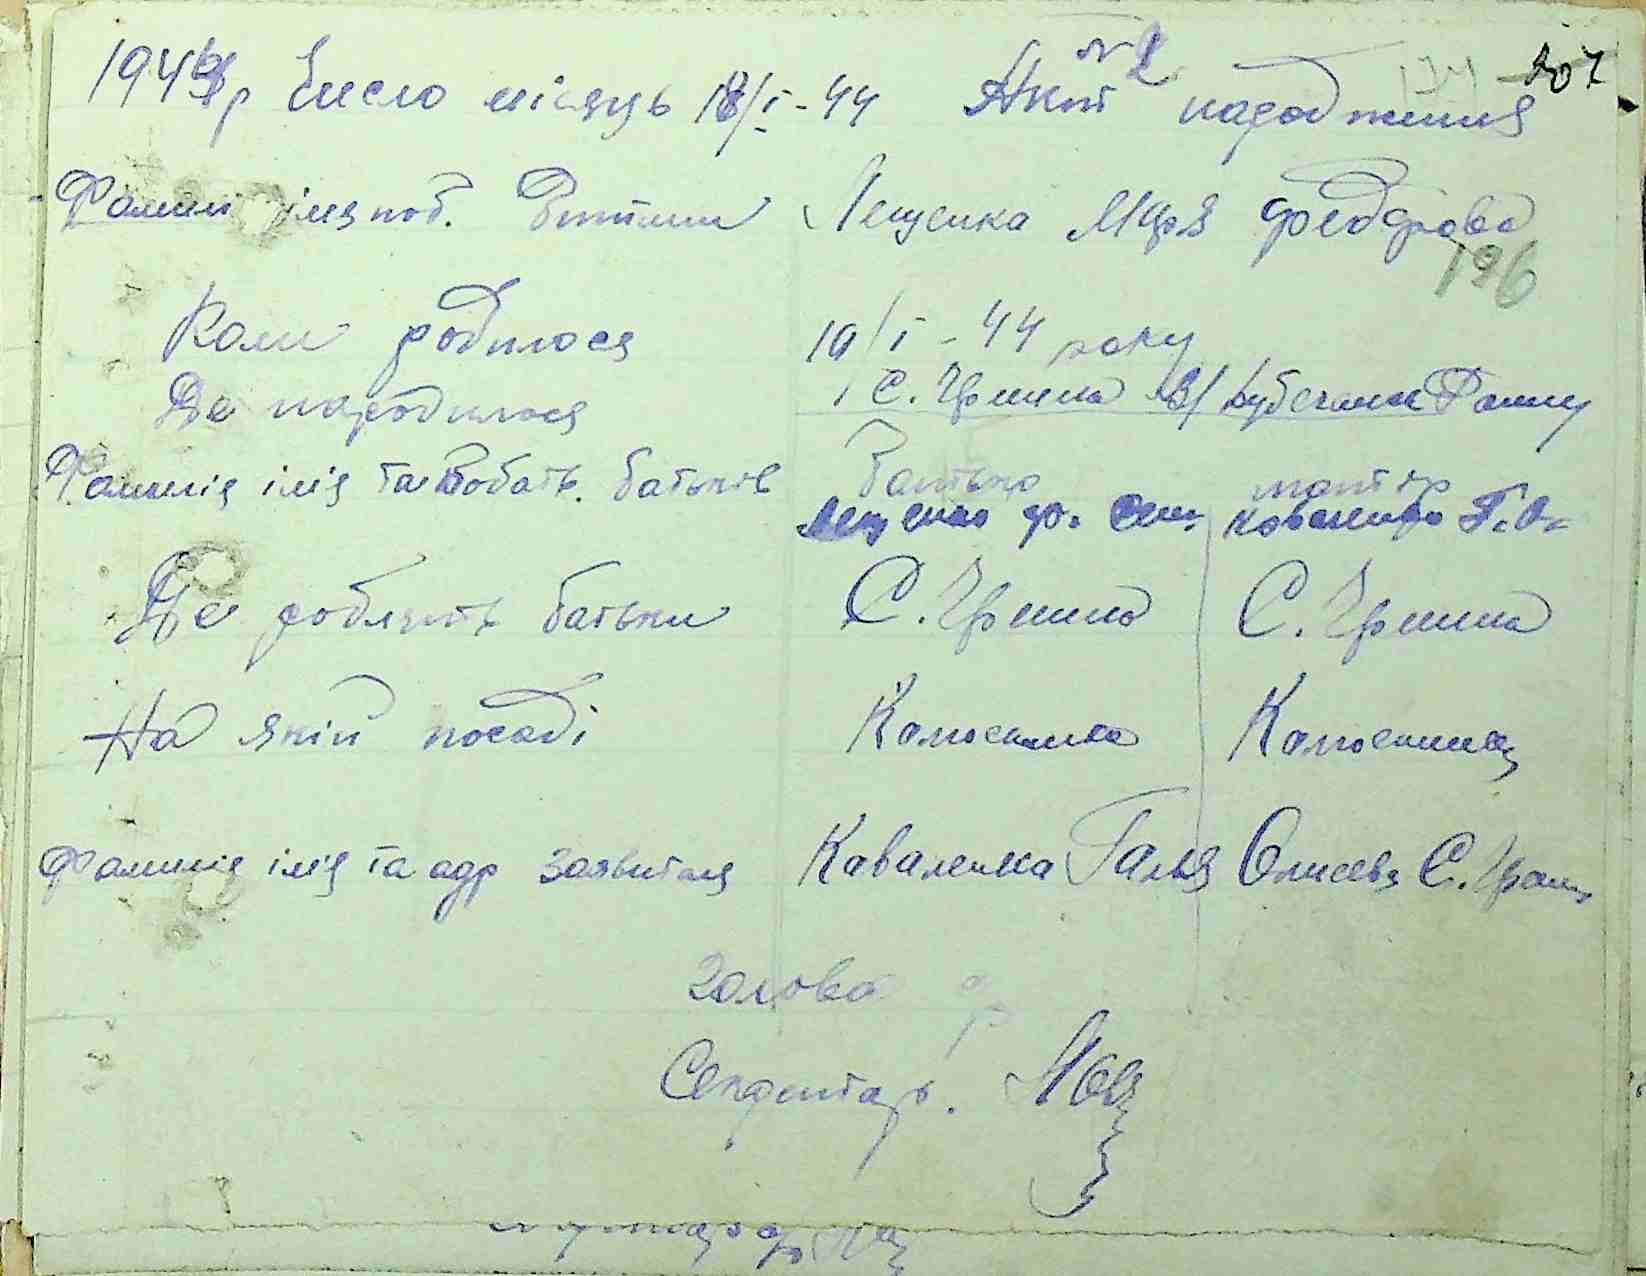 № 2
1944 р Число місяць 18/I-44 Акт народження 207
Фамилі імя поб. Дитини Лещенка Марія Федорова
196
Коли родилося 10/I-44 року
Де народилося С. Ярмина В/ Дубечанск Району
Фамилія імія та Побать. батьків Батько матір
Лещенко Ф. Сем. Коваленко Г.О.
Де роблять батьки С. Ярмина С. Ярмина
На якій посаді Калгоспника Калгоспниця
Фамилія імія та адр заявителя Каваленка Галя Олисева С.
Голова
Секретарь.